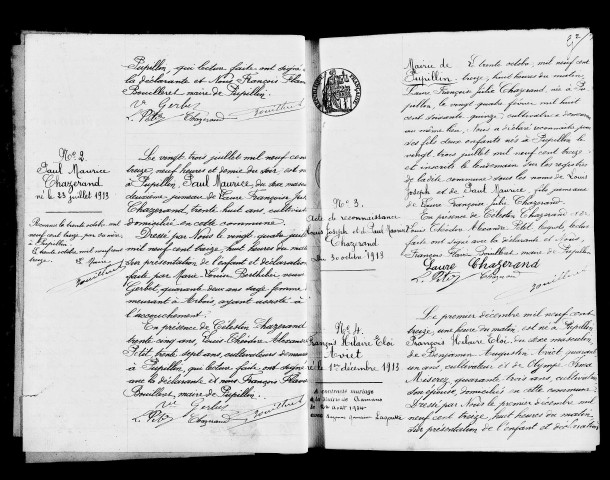 Pupillin, qui lecture faite ont signé
la déclarante et Nous François Flavi
Bouilleret maire de Pupillin.
Vve Gerbet
L. Petit Chazerand Bouilleret
N° 2.
Paul Maurice
Chazerand
né le 23 juillet 1913
Reconnu le trente octobre mil
neuf cent treize, par sa mère
à Pupillin.
Le trente octobre mil neuf cent
treize.
Le Maire
Bouilleret
Le vingt trois juillet mil neuf cent
treize, neuf heures et demie du soir est né
à Pupillin, Paul Maurice, du sexe mascu
deuxième jumeau de Laure Françoise Juli
Chazerand, trente huit ans, cultivatri
domiciliée en cette commune.
Dressé par Nous le vingt quatre juillet
mil neuf cent treize huit heures du matin
sur présentation de l'enfant et déclaration
faite par Marie Louise Berthelin veuve
Gerbet, quarante deux ans sage femme
demeurant à Arbois, ayant assisté à
l'accouchement.
En présence de Célestin Chazerand
trente cinq ans, Louis Théodore Alexandre
Petit, trente sept ans, cultivateurs demeurant
à Pupillin, qui lecture faite, ont signé
avec la déclarante et Nous François Flavi
Bouilleret, maire de Pupillin.
Vve Gerbet
L. Petit Chazerand Bouilleret
N° 3.
Acte de reconnaissance
Louis Joseph et de Paul Maurice
Chazerand
du 30 octobre 1913
N° 4.
François Hilaire Eloi
Avriet
né le 1er décembre 1913
A contracté mariage
à la Mairie de
le août 1934
avec
Mairie de
Pupillin
Le trente octobre mil neuf cent
treize, huit heures du matin
Laure Françoise Julie Chazerand, née à Pu
pillin, le vingt quatre février mil huit
cent soixante quinze, cultivatrice demeurant
au même lieu, Nous a déclaré reconnaître pour
ses fils deux enfants nés à Pupillin le
vingt trois juillet mil neuf cent treize
et inscrits le lendemain sur les registres
de la dite commune sous les noms de Louis
Joseph et de Paul Maurice, fils jumeaux
de Laure Françoise Julie Chazerand.
En présence de Célestin Chazerand et de
Louis Théodore Alexandre Petit, lesquels lecture
faite ont signé avec la déclarante et Nous,
François Flavi Bouilleret, maire de Pupillin
Laure Chazerand
L. Petit Chazerand
Bouilleret
Le premier décembre mil neuf cent
treize, une heure du matin, est né à Pupillin
François Hilaire Eloi, du sexe masculin
de Benjamin Augustin Avriet, quarante
un ans, cultivateur et de Olympe Irma
quarante trois ans, cultivatrice
son épouse, domiciliés en cette commune
Dressé par Nous le premier décembre mil
neuf cent treize huit heures du matin
sur présentation de l'enfant et déclaration